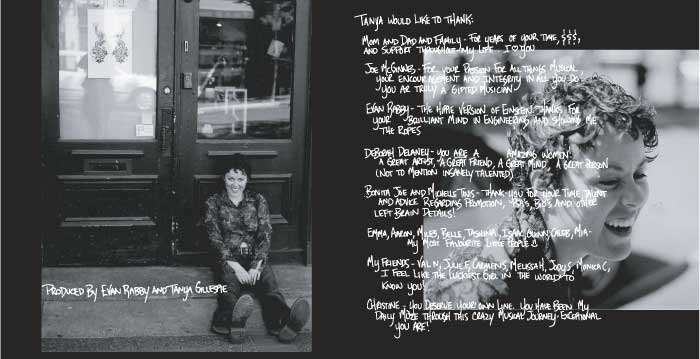 Produced by Evan Rabby and Tanya Gillespie
Tanya would like to thank:
Mom and Dad and Family - For years of your time, $$$,
and support throughout my life. I ♡ you
Joe McGinnis - For your passion for all things musical
your encouragement and integrity in all you do!
you ar truly a gifted musician
Evan Rabby - The hippie version of Einstein. Thanks for
your brilliant mind in engineering and showing me
the ropes
Deborah Delaney - you are a amazing women.
a great artist, a great friend, a great mind, a great person
(not to mention insanely talented)
Bonita Joe and Michelle - Thank-you for your time talent
and advice regarding promotion, Bio's and other
left brain details!
Emma, Aaron, Miles, Belle, Isaac, Quinn, Caleb, Mia -
my most favourite little people
My friends - Val N, Julie F, Carmen S, Melissa H, Jody S, Monica C,
I feel like the luckiest girl in the world to
know you!
Christine - you deserve your own line. You have been my
daily muze through this crazy musical journey - exceptional
you are!